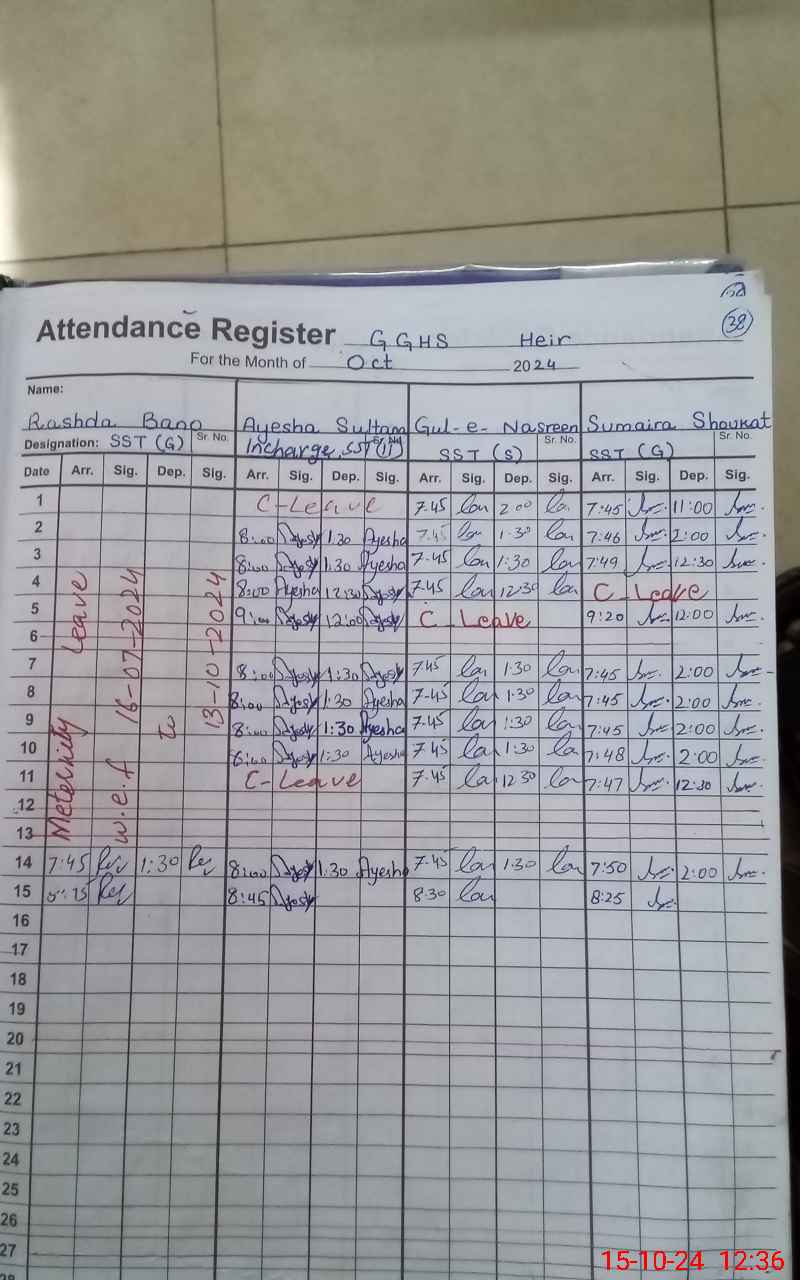 38
Attendance Register GGHS Heir
For the Month of Oct 2024
Name:
Rashda Bano Ayesha Sultana Gul-e-Nasreen Sumaira Shoukat
Designation: SST (G) Sr. No. Incharge, SST SST (S) Sr. No. SST (G) Sr. No.
Date Arr. Sig. Dep. Sig. Arr. Sig. Dep. Sig. Arr. Sig. Dep. Sig. Arr. Sig. Dep. Sig.
Meternity Leave
w.e.f 16-07-2024
to
13-10-2024
1 C-Leave 7.45 2 00 7:45 11:00
2 8:00 1:30 Ayesha 7.45 1.30 7:46 2:00
3 8:00 1:30 Ayesha 7.45 1:30 7:49 12:30
4 8:00 Ayesha 12:30 7.45 12:30 C-Leave
5 9:00 12:00 C-Leave 9:20 12:00
6
7 8:00 1:30 7.45 1.30 7:45 2:00
8 8:00 1:30 Ayesha 7.45 1.30 7:45 2:00
9 8:00 1:30 Ayesha 7.45 1:30 7:45 2:00
10 1:30 Ayesha 7.45 1.30 7:48 2:00
11 C-Leave 7.45 12 30 7:47 12:30
12
13
14 7:45 1:30 8:00 1:30 Ayesha 7.45 1.30 7:50 2:00
15 8:45 8.30 8:25
16
17
18
19
20
21
22
23
24
25
26
27
28
15-10-24 12:36